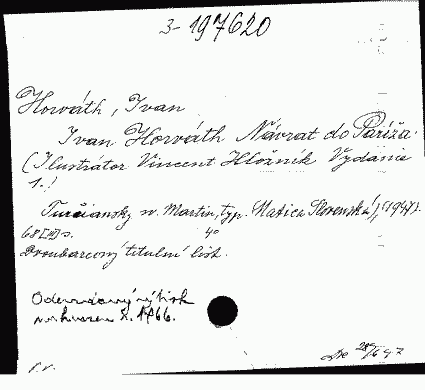 3-197620
Horváth, Ivan
Ivan Horváth Návrat do Paríža.
(Ilustrátor Vincent Hložník Vydanie
1.)
Turčiansky sv. Martin, typ. Matica Slovenská, (1947).
68 [III] s. 4°
Dvoubarevný titulní list.
výtisk
1766.